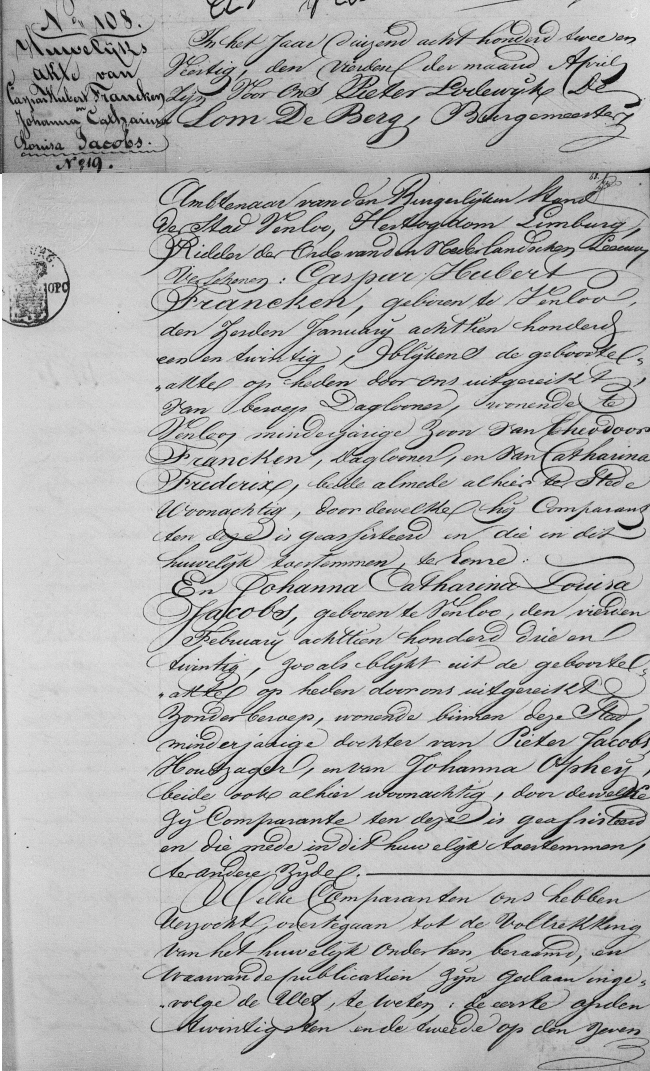 N° 108.
Huwelijks
akte van
Caspar Hubert Francken
en
Johanna Catharina
Louisa Jacobs.
N° 19.
In het Jaar duizend acht honderd twee en
Veertig, den vierden der maand April
Zijn Voor Ons Pieter Lodewijk De
Lom De Berg, Burgemeester
Ambtenaar van den Burgerlijken Stand
de Stad Venloo, Hertogdom Limburg,
Ridder der Orde van den Nederlandschen Leeuw
Verschenen: Caspar Hubert
Francken, geboren te Venloo,
den Zesden January achttien honderd
een en twintig, blijkens de geboorte-
-akte op heden door ons uitgereikt,
Van beroep Daglooner, wonende te
Venloo, minderjarige Zoon van Theodoor
Francken, Daglooner, en van Catharina
Frederix, beide almede alhier ter Stede
Woonachtig, door dewelke hij Comparant
ten deze is geassisteerd en die in dit
huwelijk toestemmen, te eenre:
En Johanna Catharina Louisa
Jacobs, geboren te Venloo, den vierden
February achttien honderd drie en
twintig, zoo als blijkt uit de geboorte-
-akte op heden door ons uitgereikt
Zonder beroep, wonende binnen deze Stad
minderjarige dochter van Pieter Jacobs
Houtzager, en van Johanna Ophey,
beide ook alhier woonachtig, door dewelke
Zij Comparante ten deze is geassisteerd
en die mede in dit huwelijk toestemmen,
ter andere Zyde.
Welke Comparanten ons hebben
Verzocht, overtegaan tot de Voltrekking
van het huwelijk onder hen beraamd, en
waarvan de publicatien zijn gedaan inge-
-volge de Wet, te weten: de eerste op den
twintigsten en de tweede op den Zeven